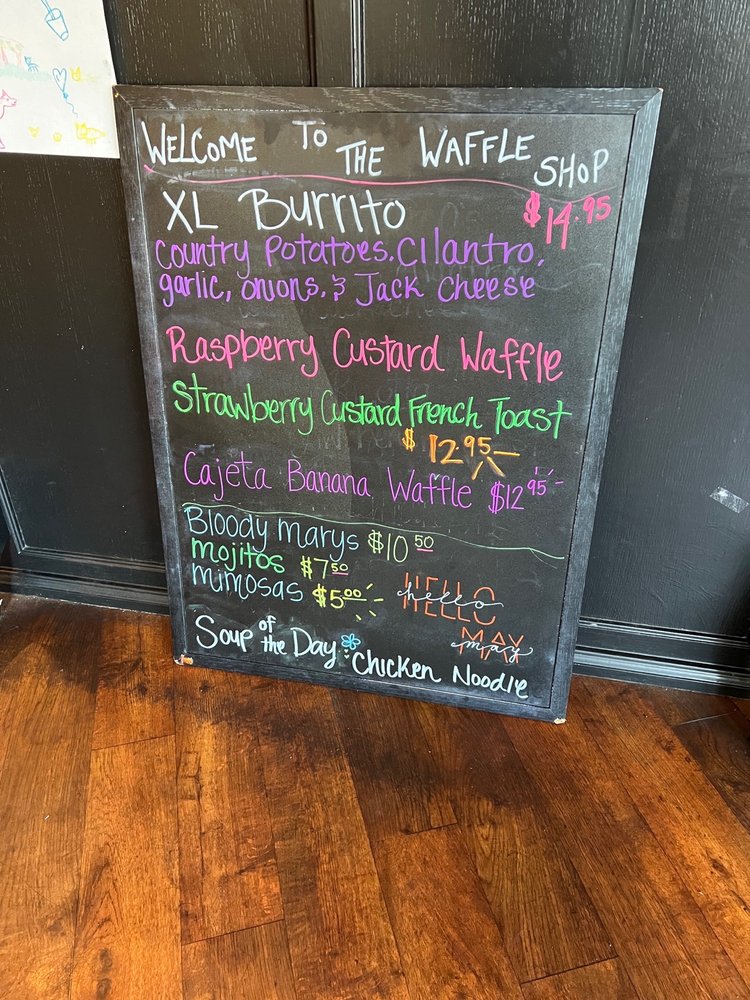 WELCOME TO THE WAFFLE SHOP
XL Burrito $14.95
Country Potatoes, Cilantro,
garlic, onions, & Jack Cheese
Raspberry Custard Waffle
Strawberry Custard French Toast
$12.95
Cajeta Banana Waffle $12.95
Bloody Marys $10.50
Mojitos $7.50
Mimosas $5.00
HELLO
hello
MAY
may
Soup of the Day
Chicken Noodle